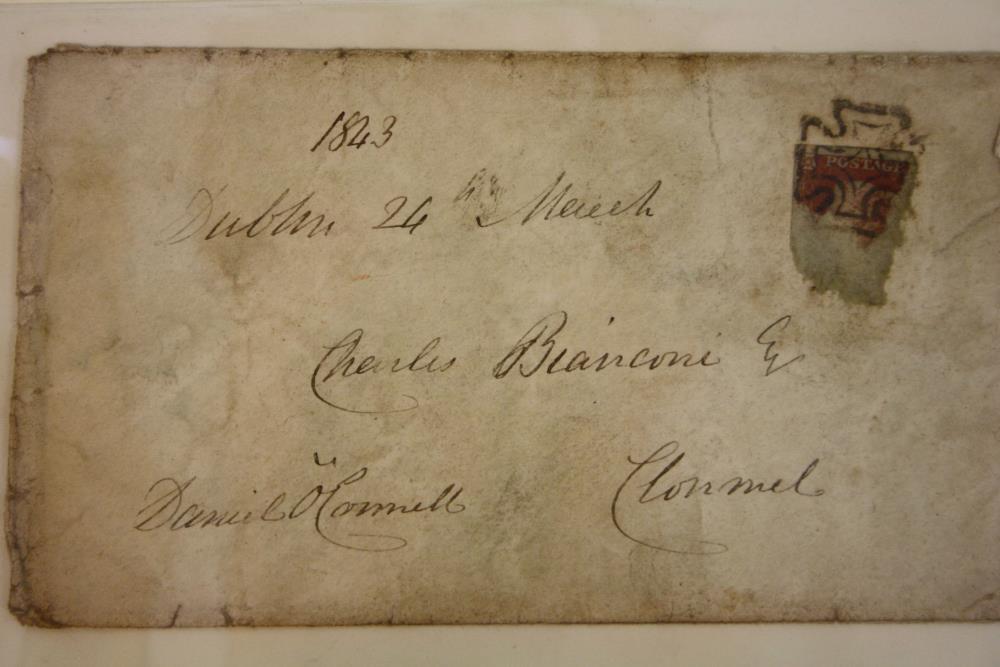 1843
Dublin 24th March
POSTAGE
Charles Bianconi Esq
Clonmel
Daniel O'Connell